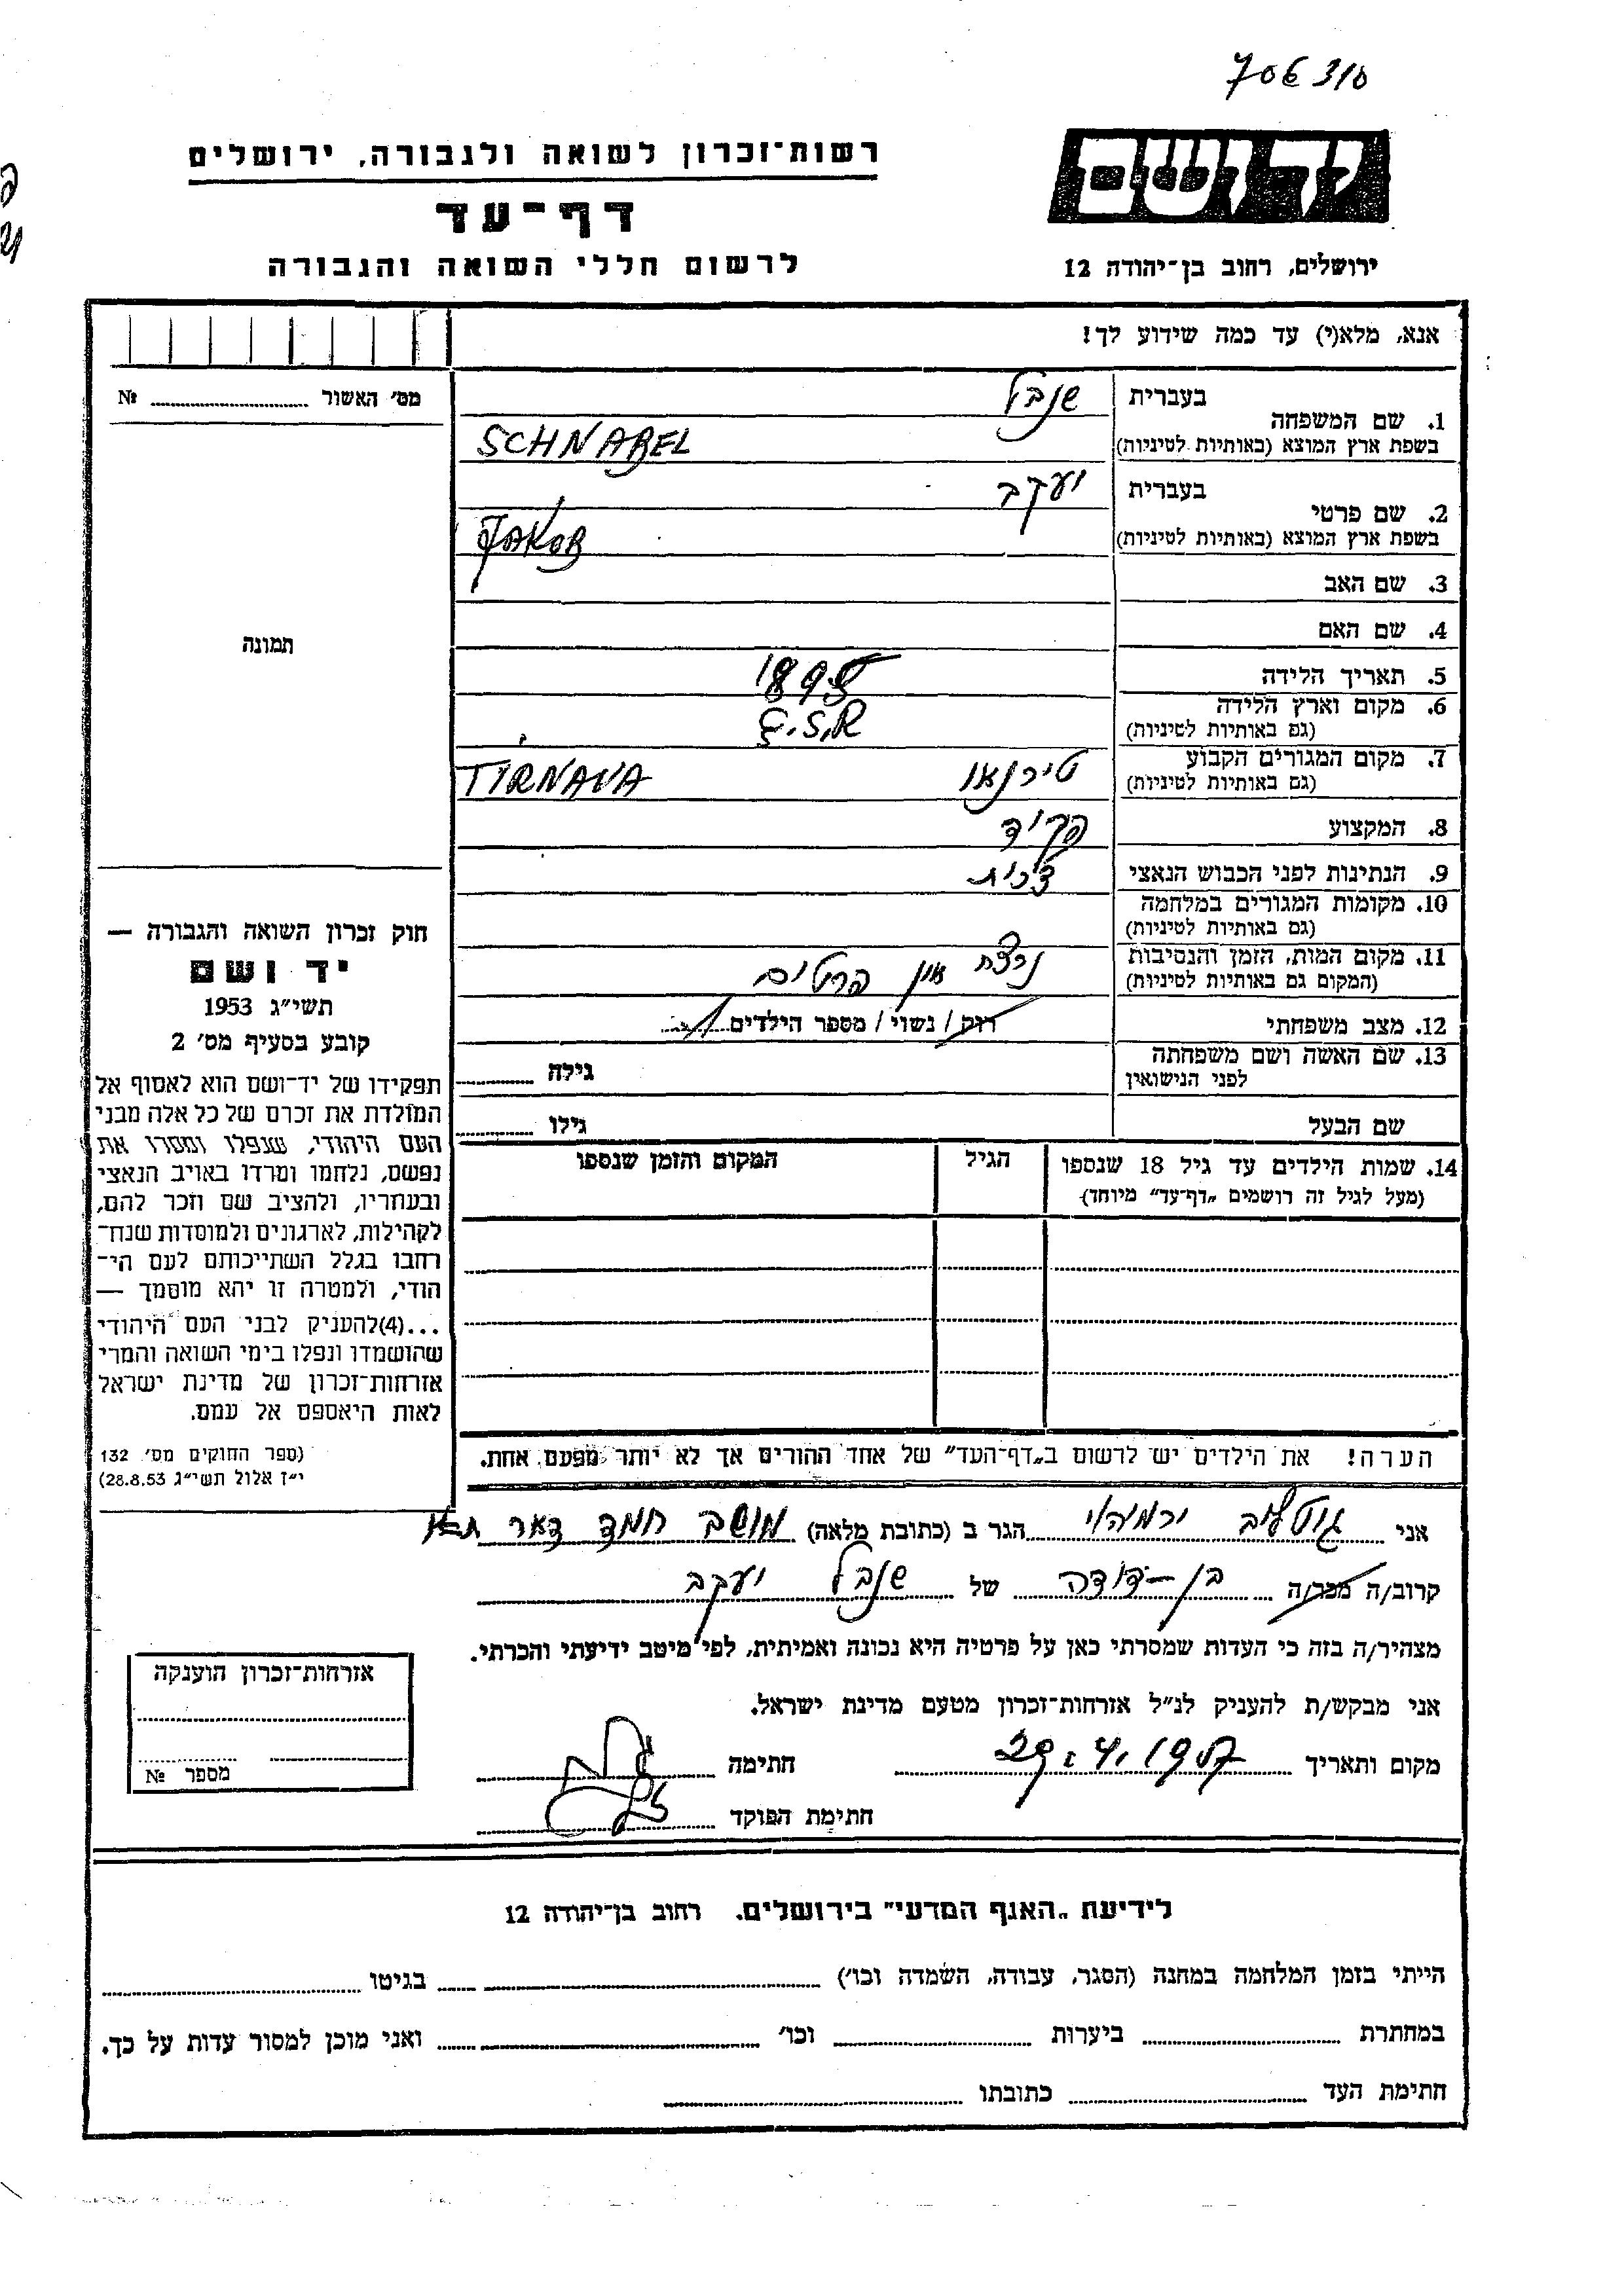 706310
רשות־זכרון לשואה ולגבורה, ירושלים
דף־עד
לרשום חללי השואה והגבורה
יד ושם
ירושלים, רחוב בן־יהודה 12
אנא, מלא(י) עד כמה שידוע לך!
מס׳ האשור № 
1. שם המשפחה בעברית שנבל
בשפת ארץ המוצא (באותיות לטיניות) SCHNABEL
2. שם פרטי בעברית יעקב
בשפת ארץ המוצא (באותיות לטיניות) JAKOB
3. שם האב
4. שם האם
תמונה
5. תאריך הלידה 1895
6. מקום וארץ הלידה
(גם באותיות לטיניות) Č.S.R
7. מקום המגורים הקבוע
(גם באותיות לטיניות) טירנאו TIRNAVA
8. המקצוע פקיד
9. הנתינות לפני הכבוש הנאצי צ׳כית
10. מקומות המגורים במלחמה
(גם באותיות לטיניות)
11. מקום המות, הזמן והנסיבות
(המקום גם באותיות לטיניות) נרצח אין פרטים
12. מצב משפחתי רוק / נשוי / מספר הילדים
13. שם האשה ושם משפחתה
לפני הנישואין גילה
שם הבעל גילו
14. שמות הילדים עד גיל 18 שנספו הגיל המקום והזמן שנספו
(מעל לגיל זה רושמים „דף־עד״ מיוחד)
חוק זכרון השואה והגבורה —
יד ושם
תשי״ג 1953
קובע בסעיף מס׳ 2
תפקידו של יד־ושם הוא לאסוף אל
המולדת את זכרם של כל אלה מבני
העם היהודי, שנפלו ומסרו את
נפשם, נלחמו ומרדו באויב הנאצי
ובעוזריו, ולהציב שם וזכר להם,
לקהילות, לארגונים ולמוסדות שנח־
רחבו בגלל השתייכותם לעם הי־
הודי, ולמטרה זו יהא מוסמך —
...(4)להעניק לבני העם היהודי
שהושמדו ונפלו בימי השואה והמרי
אזרחות־זכרון של מדינת ישראל
לאות היאספם אל עמם.
(ספר החוקים מס׳ 132
י״ז אלול תשי״ג 28.8.53)
הערה! את הילדים יש לרשום ב„דף־העד״ של אחד ההורים אך לא יותר מפעם אחת.
אני גוטליב ירמיהו הגר ב (כתובת מלאה) מושב חמד דאר
קרוב/ה מכר/ה בן-דודה של שנבל יעקב
מצהיר/ה בזה כי העדות שמסרתי כאן על פרטיה היא נכונה ואמיתית, לפי מיטב ידיעתי והכרתי.
אני מבקש/ת להעניק לנ״ל אזרחות־זכרון מטעם מדינת ישראל.
מקום ותאריך 29.4.1957 חתימה
חתימת הפוקד
אזרחות־זכרון הוענקה
מספר №
לידיעת „האגף המדעי״ בירושלים. רחוב בן־יהודה 12
הייתי בזמן המלחמה במחנה (הסגר, עבודה, השמדה וכו׳) בגיטו
במחתרת ביערות וכו׳ ואני מוכן למסור עדות על כך.
חתימת העד כתובתו